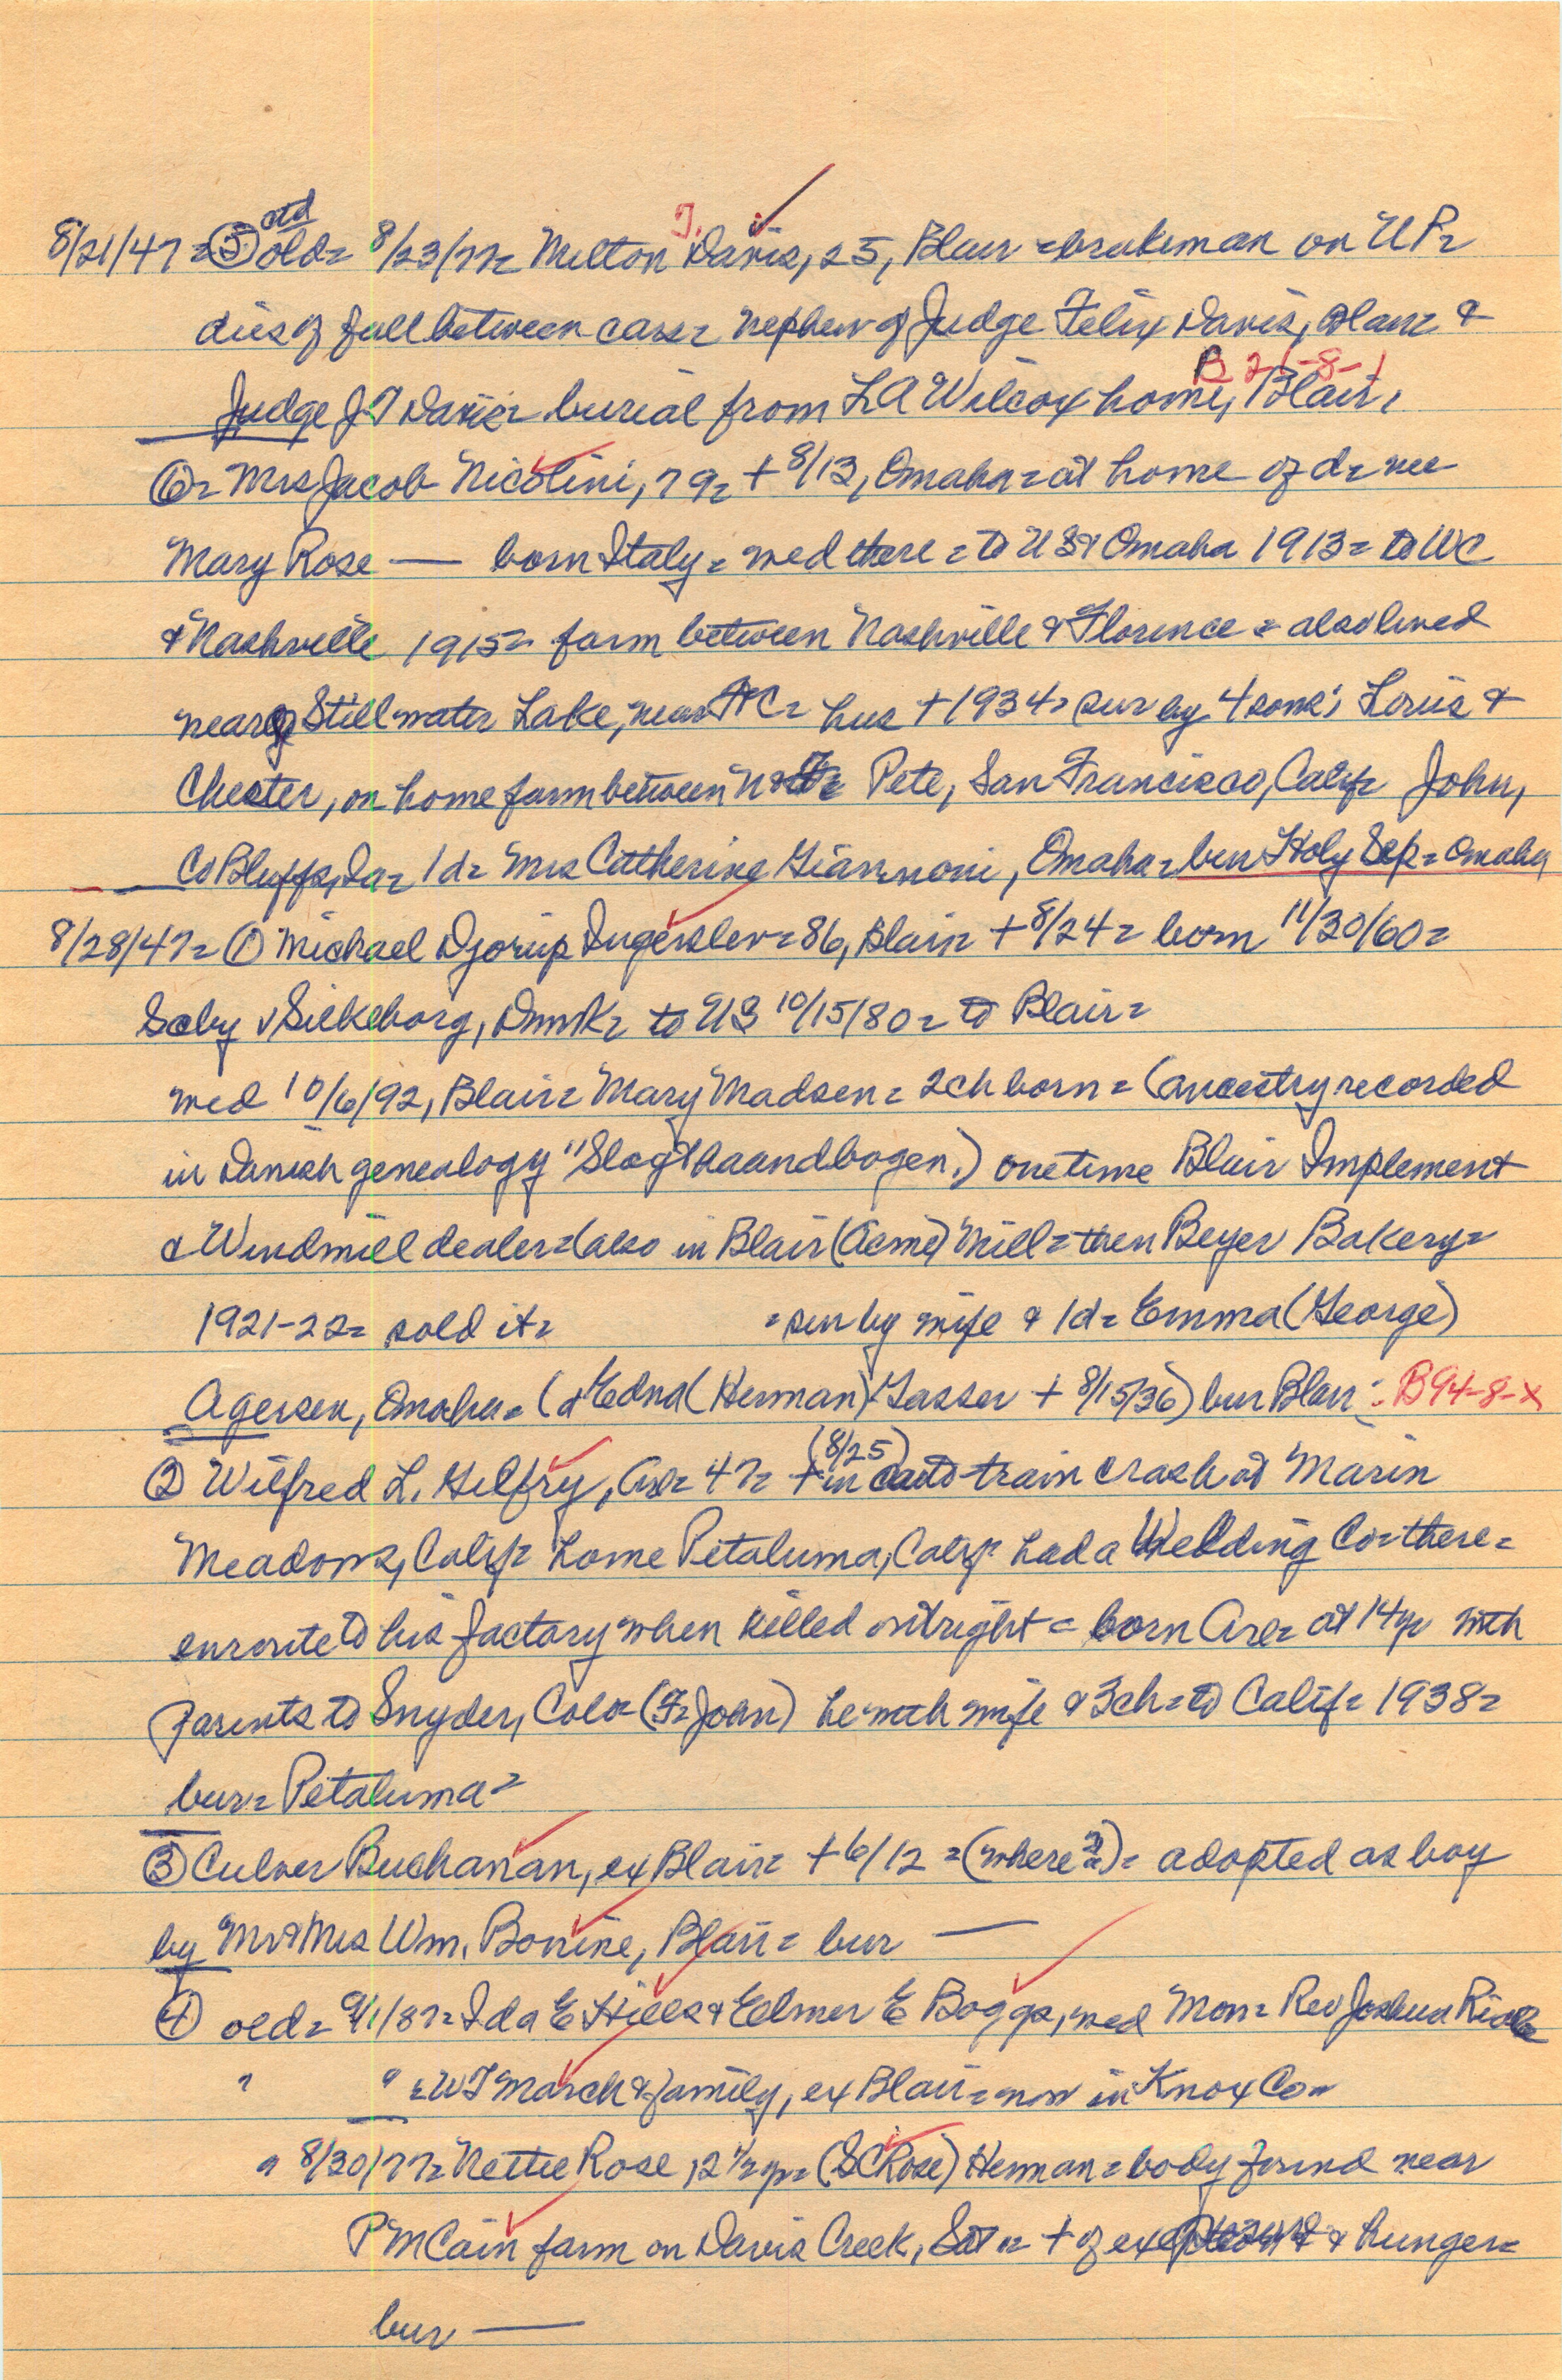 ctd T.
8/21/47 = ⑤ old = 8/23/77 = Milton Davis, 25, Blair = brakeman on UP =
dies of fall between cars = nephew of Judge Felix Davis, Blair &
B 21-8-1
Judge J T Davis = burial from L A Wilcox home, Blair,
⑥ = Mrs Jacob Nicolini, 79 = + 8/13, Omaha = at home of d = nee
Mary Rose — born Italy = wed there = to US & Omaha 1913 = to WC
& Nashville 1915 = farm between Nashville & Florence = also lived
near Stillwater Lake, near FtC = hus + 1934 = sur by 4 sons; Louis &
Chester, on home farm between N & F = Pete, San Francisco, Calif = John,
Co Bluffs, Ia = 1d = Mrs Catherine Giannoni, Omaha = bur Holy Sep = Omaha
8/28/47 = ① Michael Djorup Ingerslev = 86, Blair = + 8/24 = born 11/30/60 =
Seby v Silkeborg, Dnmk = to US 10/15/80 = to Blair =
wed 10/6/92, Blair = Mary Madsen = 2ch born = (ancestry recorded
in Danish genealogy "Slagthaandbogen.) one time Blair Implement
& Windmill dealer = (also in Blair (Acme) Mill = then Beyer Bakery =
1921-22 = sold it = = sur by wife & 1d = Emma (George)
Agersen, Omaha = (d Edna (Herman) Gasser + 8/15/36) bur Blair = B94-8-x
(8/25)
② Wilfred L. Gilfry, Arl = 47 = + in auto-train crash at Marin
Meadows, Calif = home Petaluma, Calif = had a Welding Co = there =
enroute to his factory when killed outright = born Arl = at 14yr with
parents to Snyder, Colo = (F = John) he with wife & 3ch = to Calif = 1938 =
bur = Petaluma =
③ Culver Buchanan, ex Blair = + 6/12 = (where?) = adopted as boy
by Mr & Mrs Wm. Bonine, Blair = bur —
④ old = 9/1/87 = Ida E Hills & Elmer E Boggs, wed Mon = Rev Joshua
" " = W T March & family, ex Blair = now in Knox Co =
" 8/30/77 = Nettie Rose, 12 1/2 yr = (S C Rose) Herman = body found near
P McCain farm on Davis Creek, Sat = + of exposure & hunger =
bur —